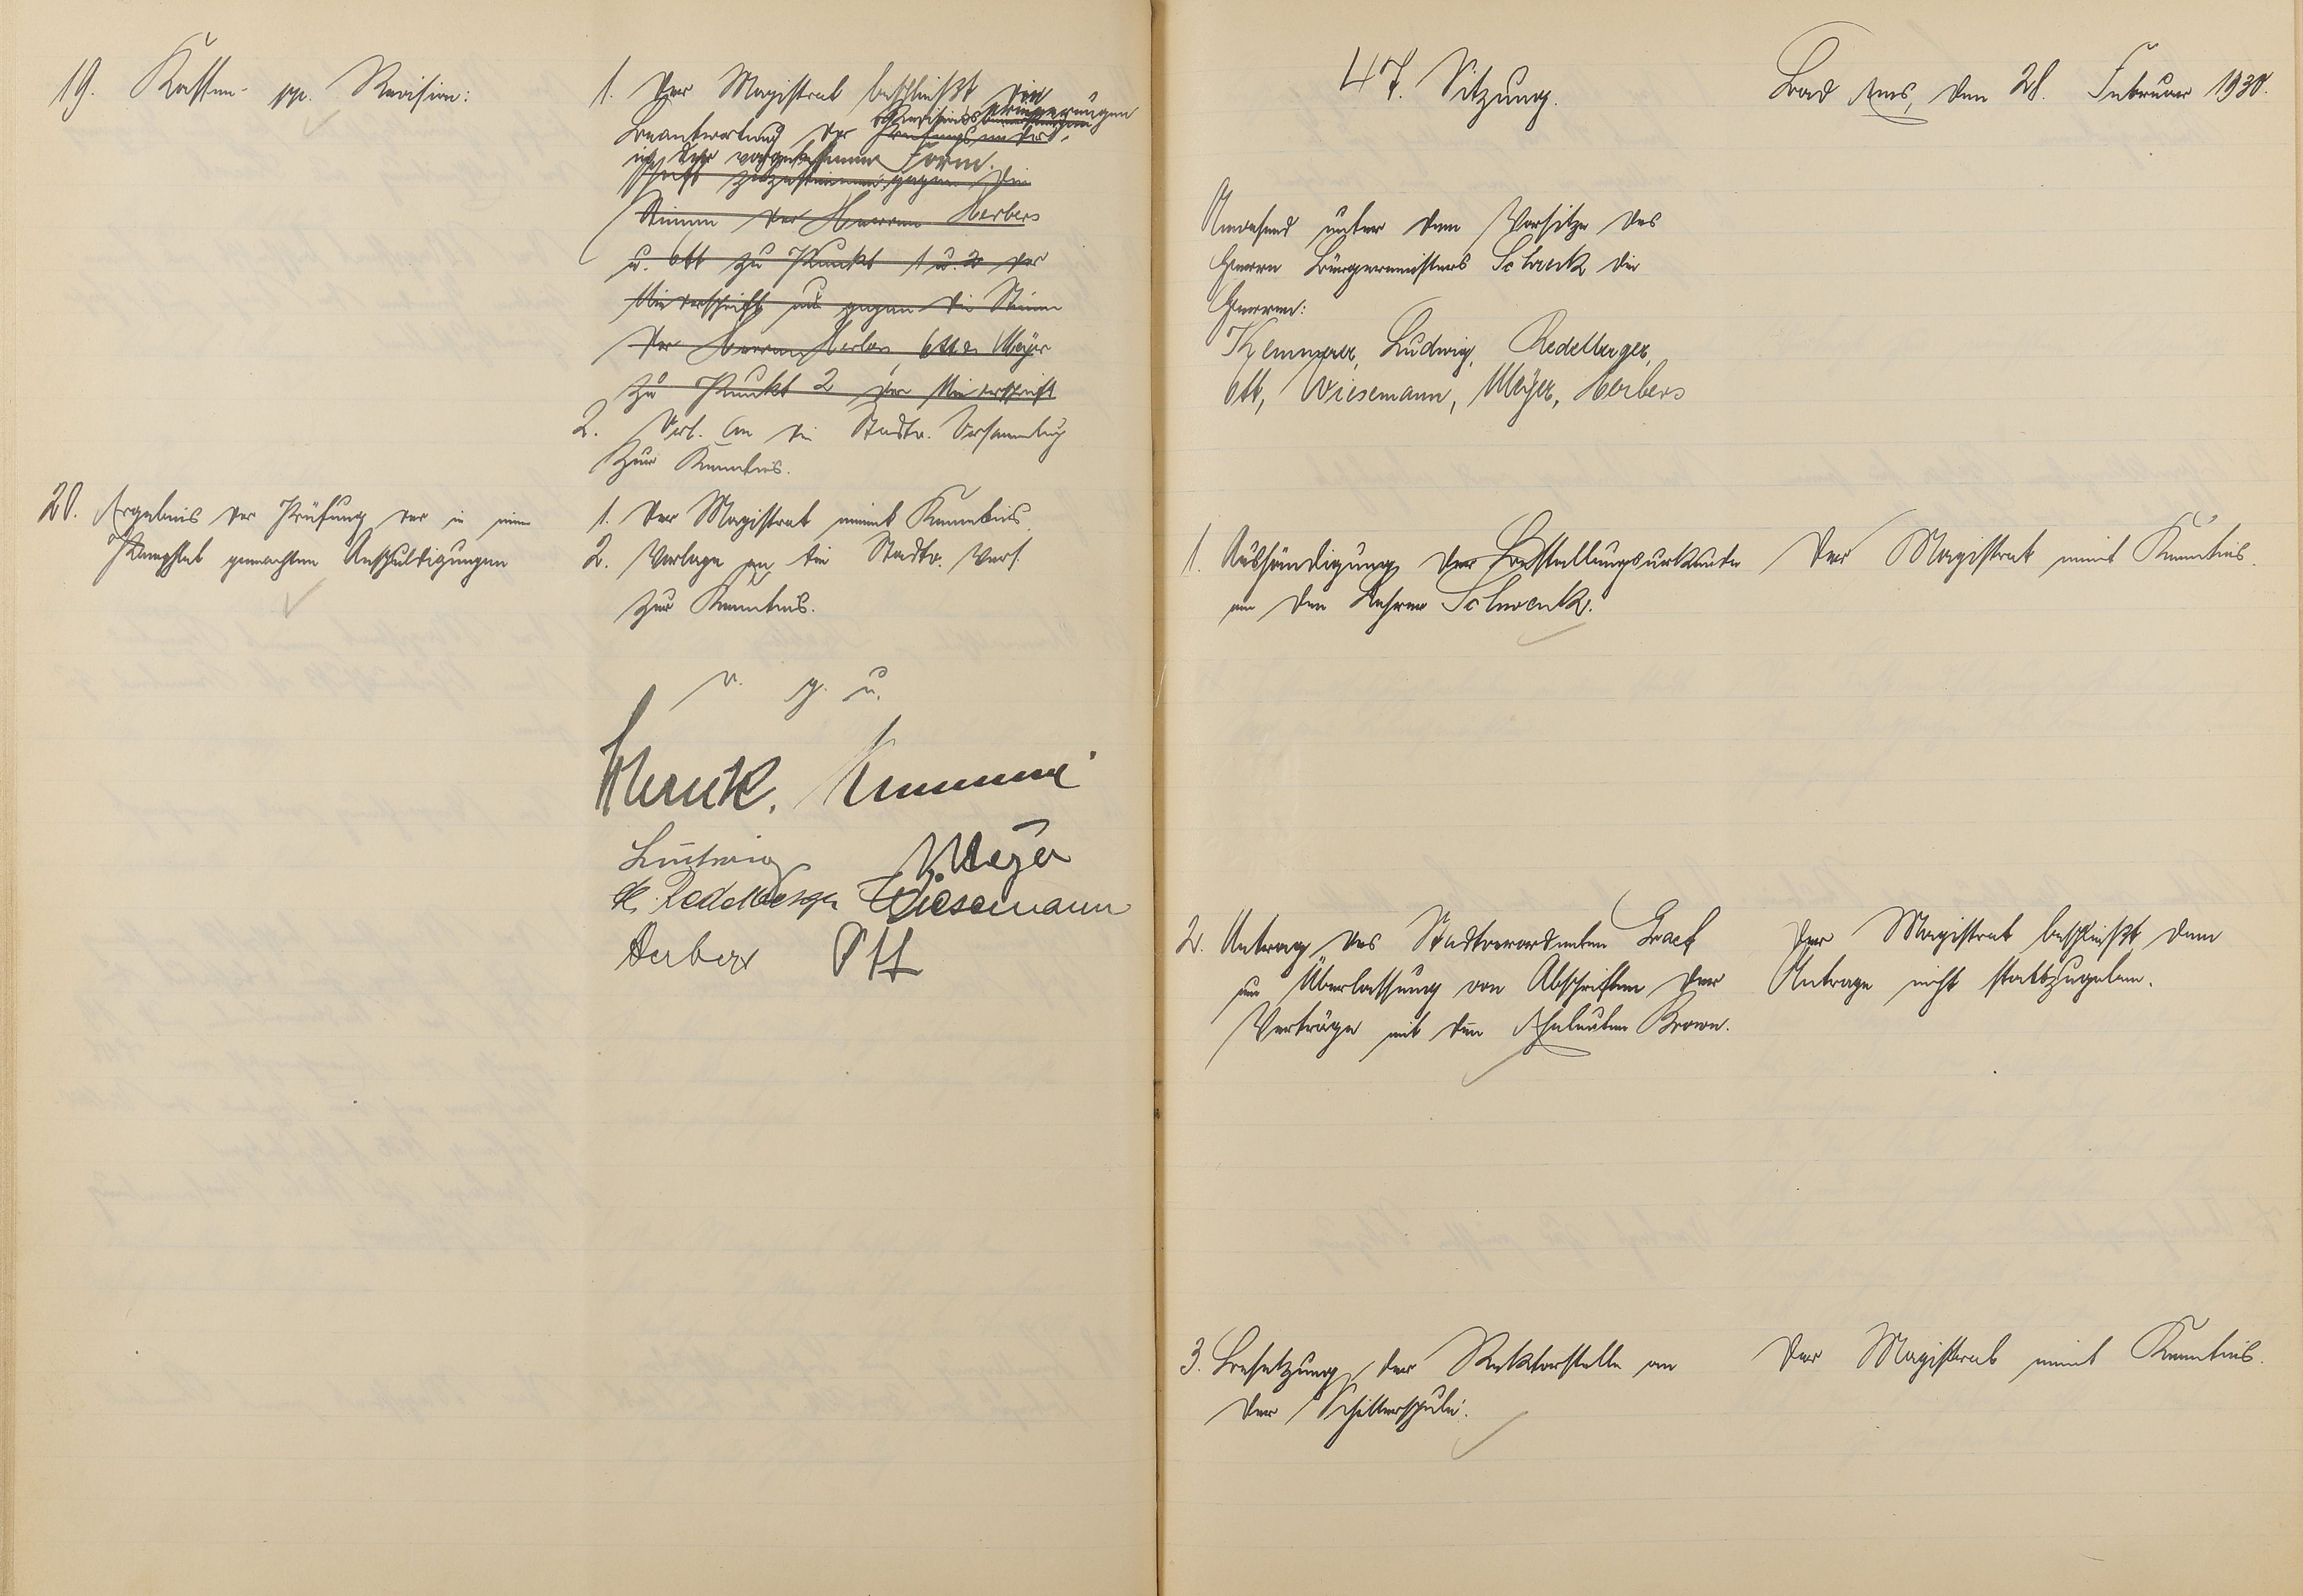 19. Kassen- pp. Revision:
1. Der Magistrat beschließt die
Beantwortung der Revisionserinnerungen
in der vorgelesenen Form.
schrift zuzustimmen gegen die
Stimme der Herren Herbers
u. Ott zu Punkt 1 u. 2 der
Niederschrift und gegen die Stimme
der Herren Herbers, Ott u. Meyer
zu Punkt 2 der Niederschrift
2. Vorl. an die Stadtv. Versammlung
zur Kenntnis.
20. Ergebnis der Prüfung der in einem
Pamphlet gemachten Anschuldigungen
1. Der Magistrat nimmt Kenntnis.
2. Vorlage an die Stadtv. Vers.
zur Kenntnis.
v. g. u.
Schenk.
Ludwig Meyer
Redelberger Wiesemann
Herbers Ott
47. Sitzung. Bad Ems, den 28. Februar 1930.
Anwesend unter dem Vorsitze des
Herrn Bürgermeisters Schenk die
Herren:
Kemmerer, Ludwig, Redelberger,
Ott, Wiesemann, Meyer, Herbers
1. Aushändigung der Bestallungsurkunde
an den Lehrer Schwenk.
Der Magistrat nimmt Kenntnis.
2. Antrag des Stadtverordneten Graef
um Überlassung von Abschriften der
Verträge mit den Eheleuten Brown.
Der Magistrat beschließt dem
Antrage nicht stattzugeben.
3. Besetzung der Rektorstelle an
der Schillerschule.
Der Magistrat nimmt Kenntnis.